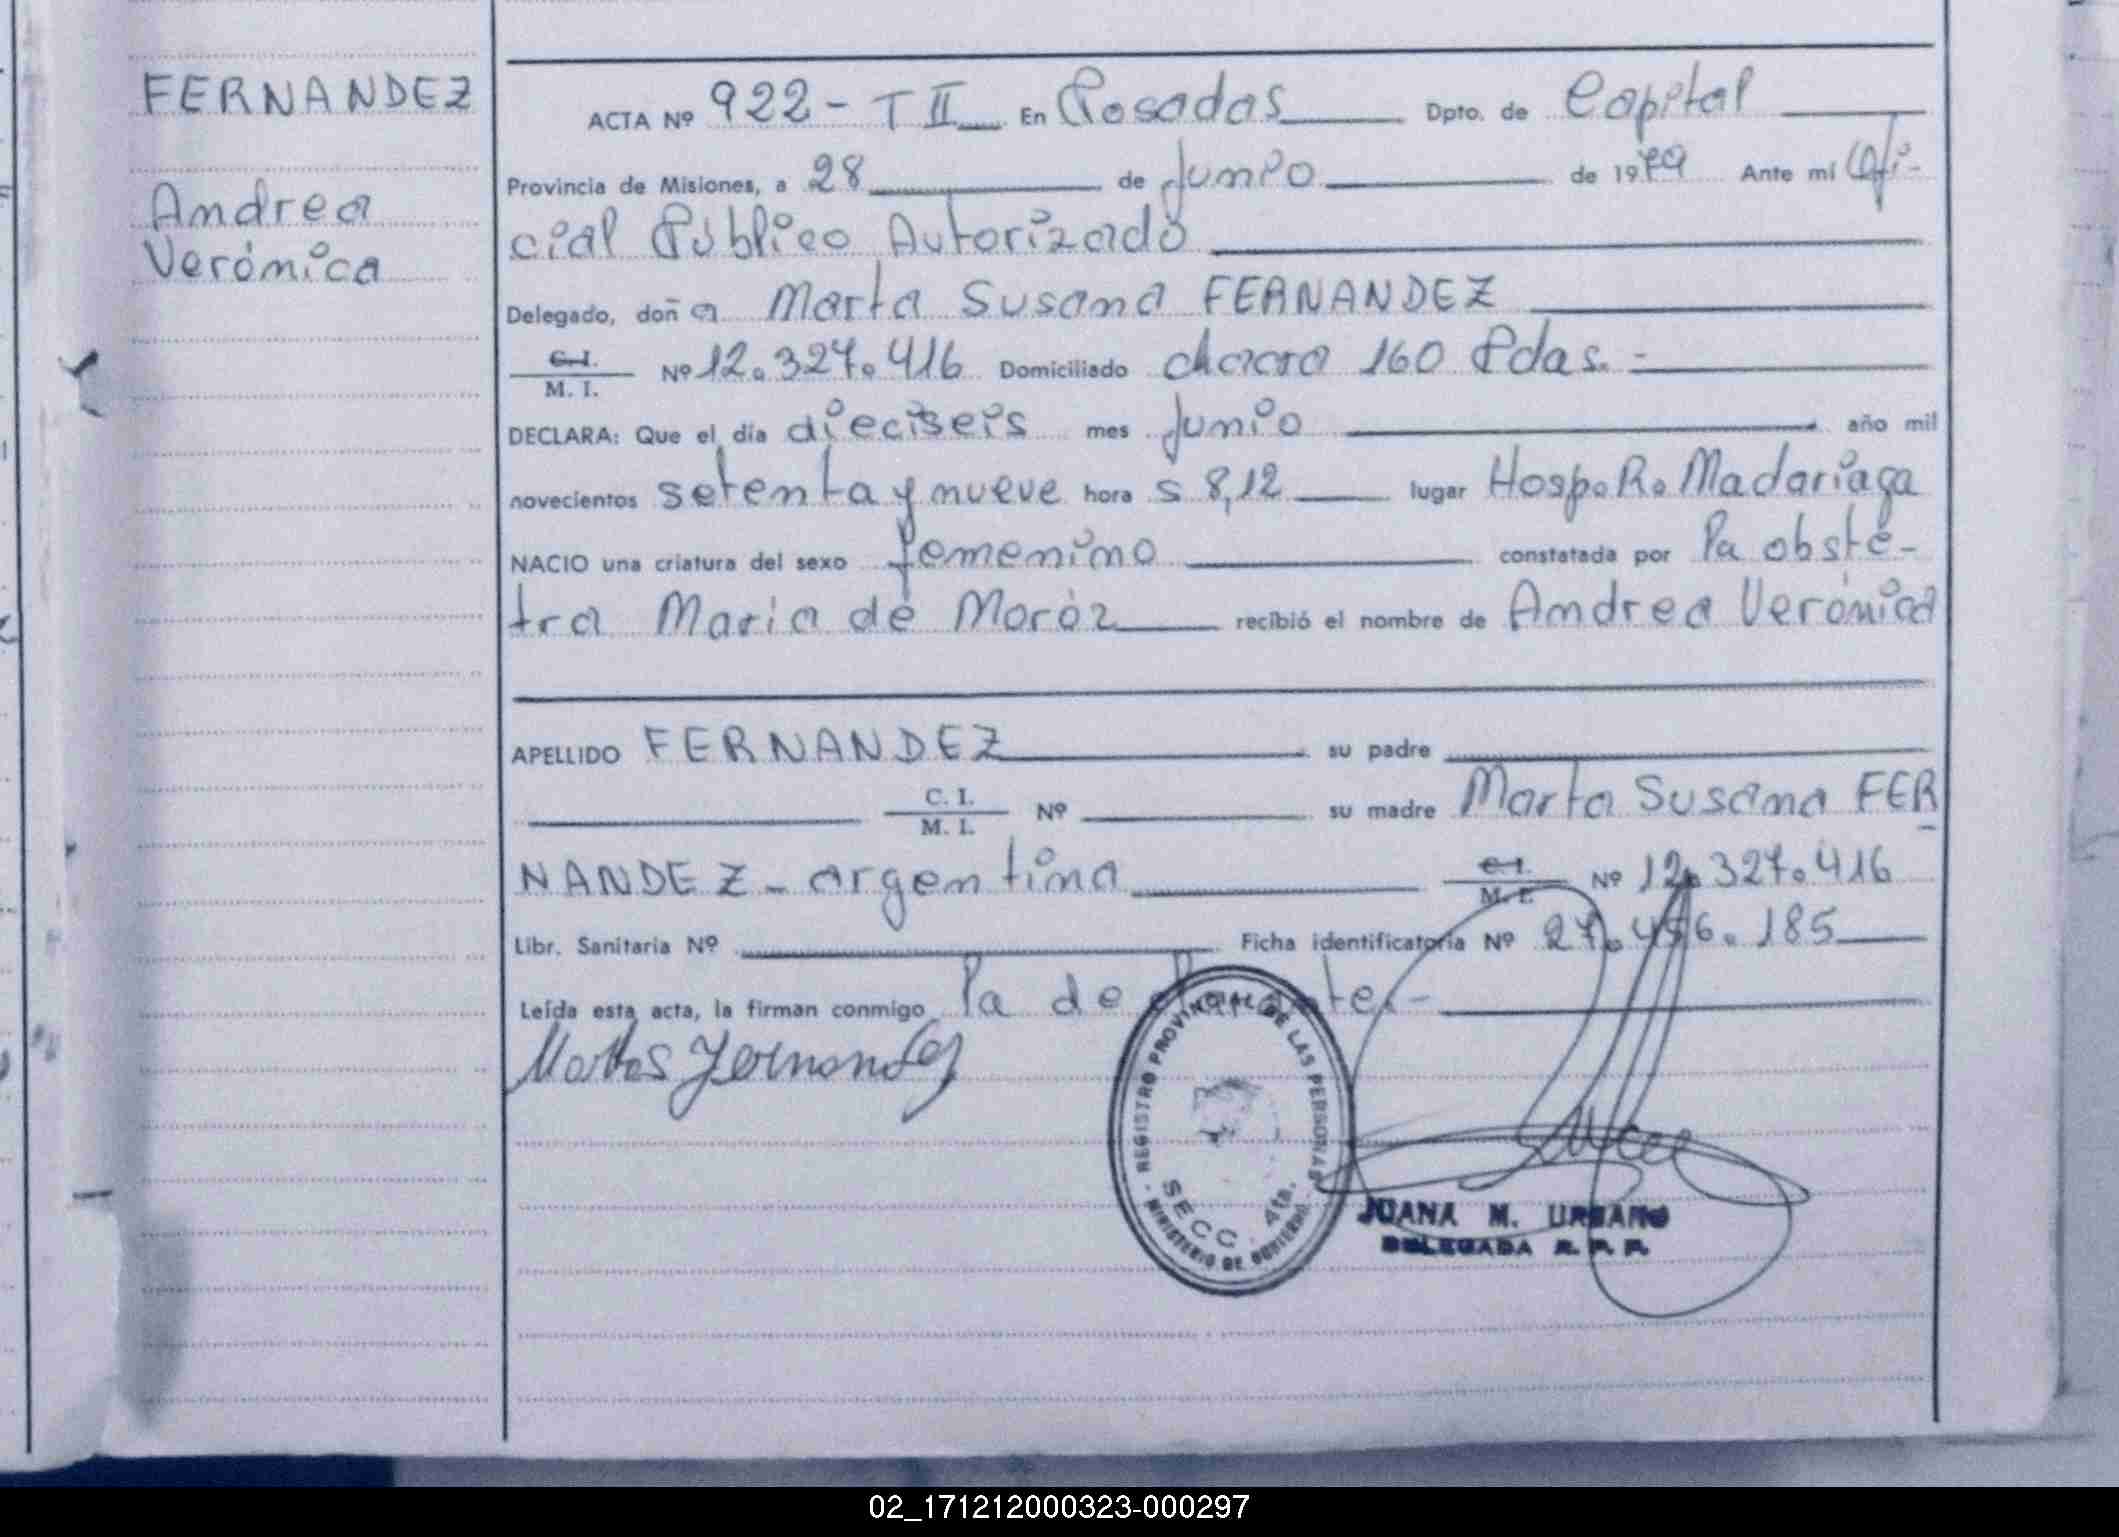 FERNANDEZ
Andrea
Verónica
ACTA Nº 922 - T II En Posadas Dpto. de Capital
Provincia de Misiones, a 28 de Junio de 1979 Ante mí Ofi-
cial Público Autorizado
Delegado, doña Marta Susana FERNANDEZ
C. I.
M. I. Nº 12.327.416 Domiciliado chacra 160 Pdas. -
DECLARA: Que el día dieciseis mes Junio año mil
novecientos setenta y nueve hora s 8,12 lugar Hosp. R. Madariaga
NACIO una criatura del sexo femenino constatada por la obsté-
tra Maria de Moróz recibió el nombre de Andrea Verónica
APELLIDO FERNANDEZ su padre
C. I.
M. I. Nº su madre Marta Susana FER
NANDEZ - argentina C. I.
M. I. Nº 12.327.416
Libr. Sanitaria Nº Ficha identificatoria Nº 27.456.185
Leída esta acta, la firman conmigo la declarante. -
Marta S Fernandez
REGISTRO PROVINCIAL DE LAS PERSONAS
SECC. 4ta.
MINISTERIO DE GOBIERNO
JUANA M. URBANO
DELEGADA R. P. P.
02_171212000323-000297